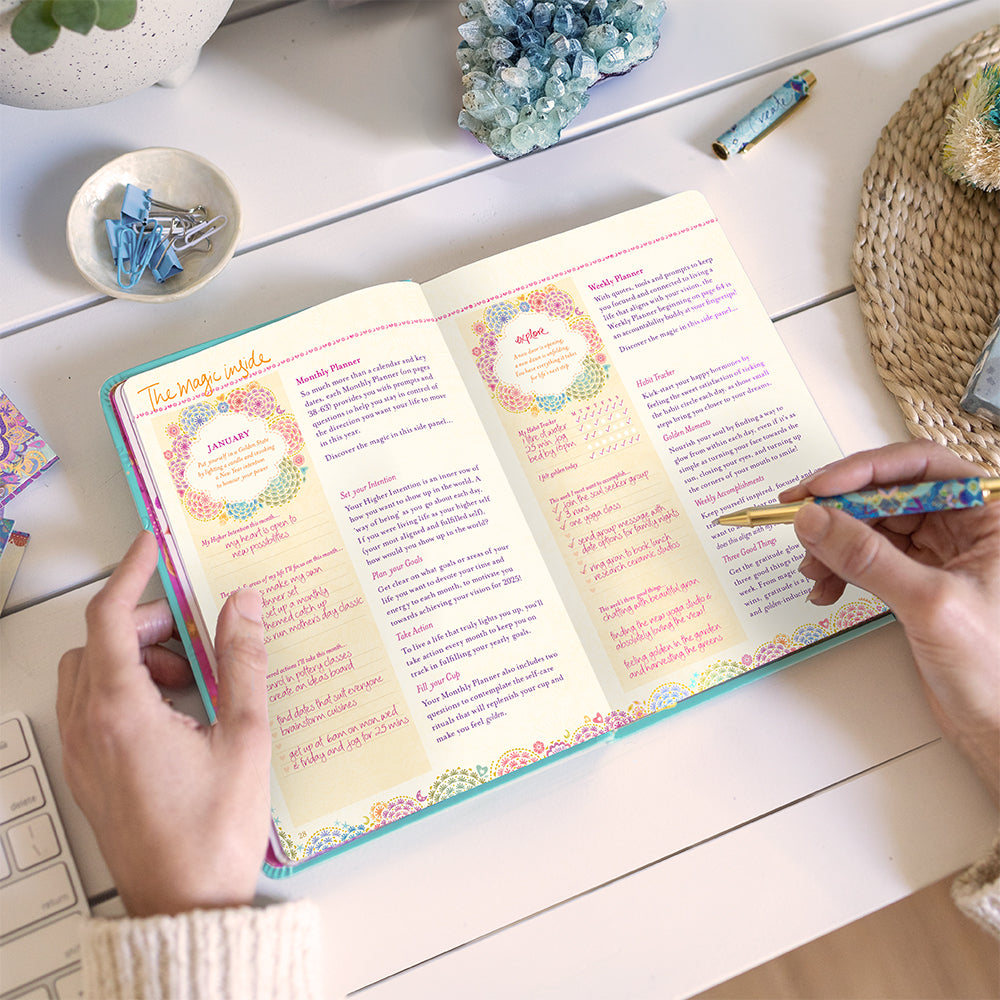 The Magic inside
JANUARY
Put yourself in a Golden State
by lighting a candle and invoking
a New Year intention
to honour your power
My Higher Intention this month:
my heart is open to
new possibilities
areas of my life I'll focus on this month...
make my own
dinner set
set up a monthly
themed catch up
run mother's day classic
actions I'll take this month...
enrol in pottery classes
create an ideas board
find dates that suit everyone
brainstorm cuisines
get up at 6am on mon, wed
& friday and jog for 25 mins
28
Monthly Planner
So much more than a calendar and key
dates, each Monthly Planner (on pages
38-63) provides you with prompts and
questions to help you stay in control of
the direction you want your life to move
in this year.
Discover the magic in this side panel...
Set your Intention
Your Higher Intention is an inner row of
how you want to show up in the world. A
'way of being' as you go about each day.
If you were living life as your higher self
(your most aligned and fulfilled self),
how would you show up in the world?
Plan your Goals
Get clear on what goals or areas of your
life you want to devote your time and
energy to each month, to motivate you
towards achieving your vision for 2025!
Take Action
To live a life that truly lights you up, you'll
take action every month to keep you on
track in fulfilling your yearly goals.
Fill your Cup
Your Monthly Planner also includes two
questions to contemplate the self-care
rituals that will replenish your cup and
make you feel golden.
explore
A new door is opening,
a new dawn is unfolding.
You have everything it takes
for life's next step
My Habit Tracker
M T W T F S S
litre of water
25 min jog
bed by 9pm
I felt golden today
This week I want to accomplish...
join the soul seeker group
3 runs
one yoga class
send group message with
date options for family nights
ring around to book lunch
research ceramic studios
This week's three good things...
chatting with beautiful aran
finding the new yoga studio &
absolutely loving the view!
feeling golden in the garden
and harvesting the greens
Weekly Planner
With quotes, tools and prompts to keep
you focused and connected to living a
life that aligns with your vision, the
Weekly Planner beginning on page 64 is
an accountability buddy at your fingertips!
Discover the magic in this side panel...
Habit Tracker
Kick-start your happy hormones by
feeling the sweet satisfaction of ticking
the habit circle each day, as those small
steps bring you closer to your goals.
Golden Moments
Nourish your soul by finding a way to
glow from within each day, even if it's as
simple as turning your face towards the
sun, closing your eyes, and turning up
the corners of your mouth to smile!
Weekly Accomplishments
Keep yourself inspired, focused
want to
does this align with
Three Good Things
Get the gratitude glowing
three good things that
week. From
wins, gratitude is a
and golden-inducing
create
delete
return